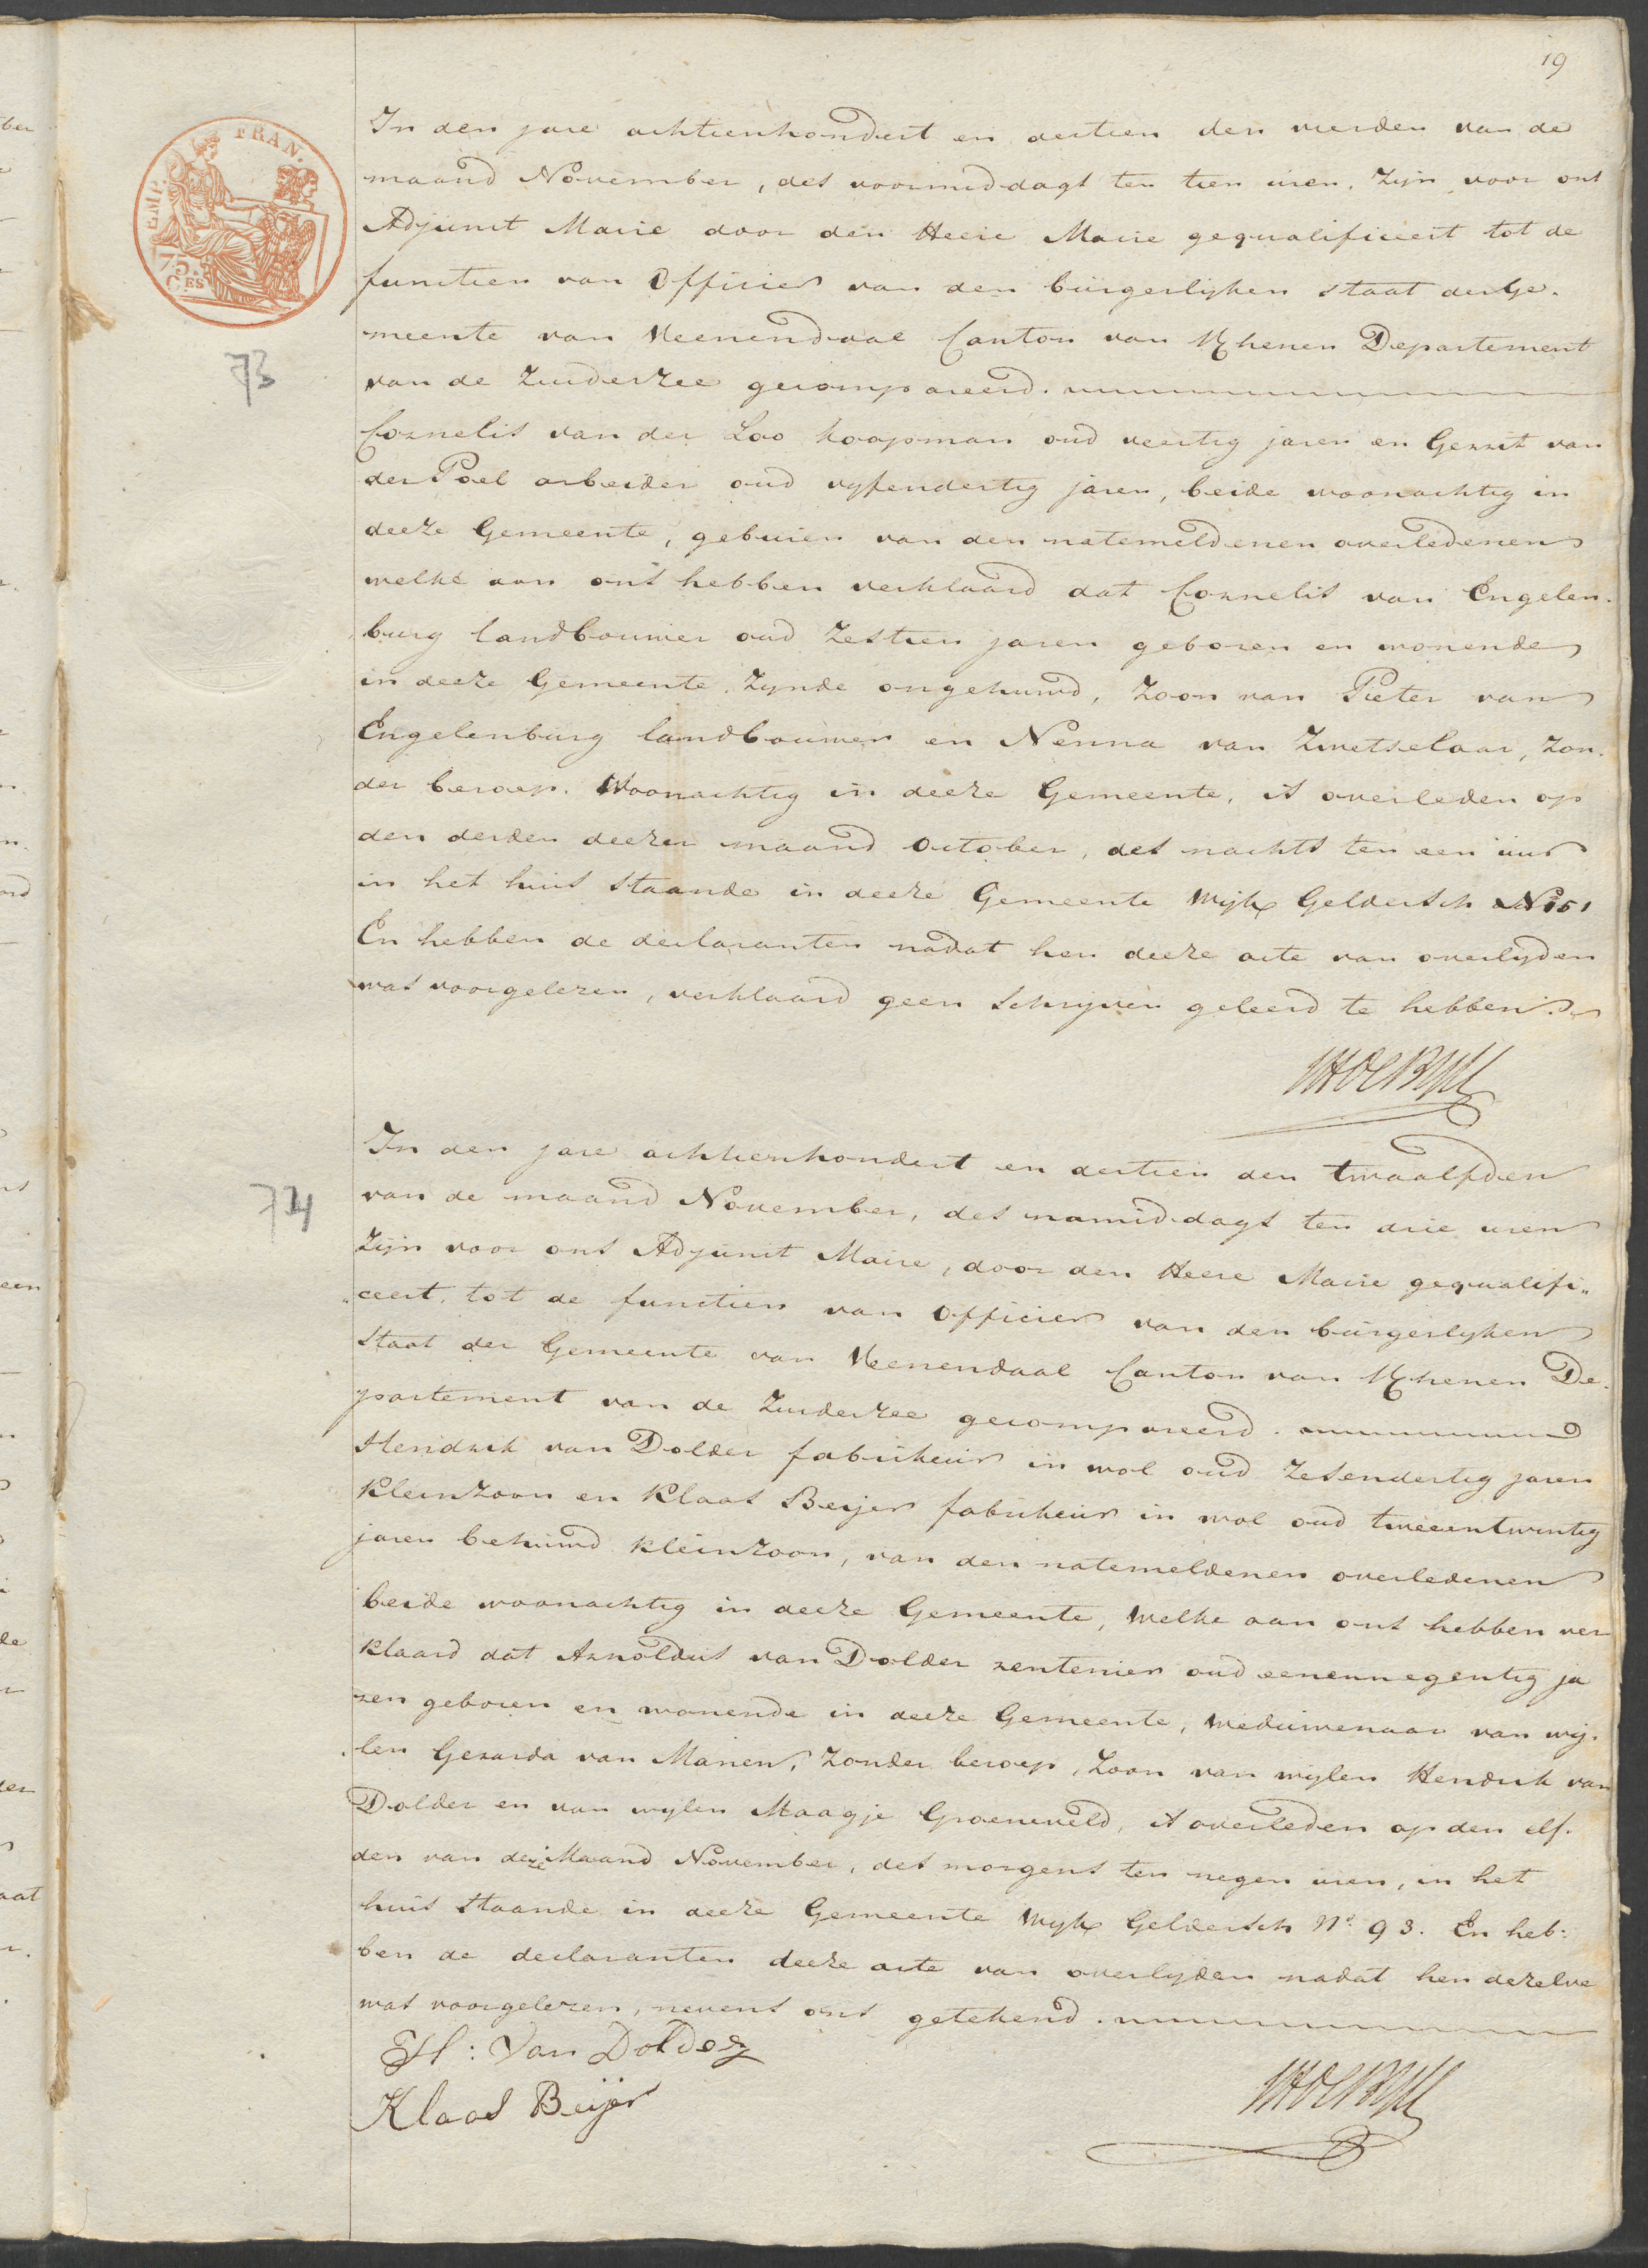 19
EMP. FRAN.
75.
CES
In den jare achtienhondert en dertien den vierden van de
maand November, des voormiddags ten tien uren. Zijn voor ons
Adjunct Maire door den Heere Maire gequalificeert tot de
functien van Officier van den burgerlyken staat der Ge.
meente van Veenendaal Canton van Rhenen Departement
van de Zuiderzee gecompareerd.
73
Cornelis van der Loo koopman oud veertig jaren en Gerrit van
der Poel arbeider oud vyfendertig jaren, beide woonachtig in
deeze Gemeente, geburen van den natemeldenen overledenen
welke aan ons hebben verklaard dat Cornelis van Engelen.
burg landbouwer oud Zestien jaren geboren en wonende
in deeze Gemeente. Zynde ongehuwd, Zoon van Pieter van
Engelenburg landbouwer en Nenna van Zwetselaar, Zon.
der beroep. Woonachtig in deeze Gemeente, is overleden op
den derden deezer maand October, des nachts ten een uur
in het huis staande in deeze Gemeente Wijk Geldersch No 151
En hebben de declaranten nadat hen deeze acte van overlyden
was voorgelezen, verklaard geen Schryven geleerd te hebben.
In den jare achtienhondert en dertien den twaalfden
74
van de maand November, des namiddags ten drie uren
Zijn voor ons Adjunct Maire, door den Heere Maire gequalifi„
„ceert. tot de functien van Officier van den burgerlyken
Staat der Gemeente van Veenendaal Canton van Rhenen De.
partement van de Zuiderzee gecompareerd.
Hendrik van Dolder fabrikeur in wol oud Zesendertig jaren
Kleinzoon en Klaas Beijer fabrikeur in wol oud tweeentwintig
jaren behuwd kleinzoon, van den natemeldenen overledenen
beide woonachtig in deeze Gemeente, Welke aan ons hebben ver
klaard dat Arnoldus van Dolder rentenier oud eenennegentig ja
ren geboren en wonende in deeze Gemeente, Weduwenaar van wij.
len Gerarda van Manen, Zonder beroep, Zoon van wylen Hendrik van
Dolder en van wylen Maagje Groeneveld, is overleden op den elf.
den van deze Maand November, des morgens ten negen uren, in het
huis staande in deeze Gemeente Wyk Geldersch No. 93. En heb:
ben de declaranten deeze acte van overlyden nadat hen dezelve
was voorgelezen, nevens ons getekend.
H: Van Dolder
Klaas Beijer